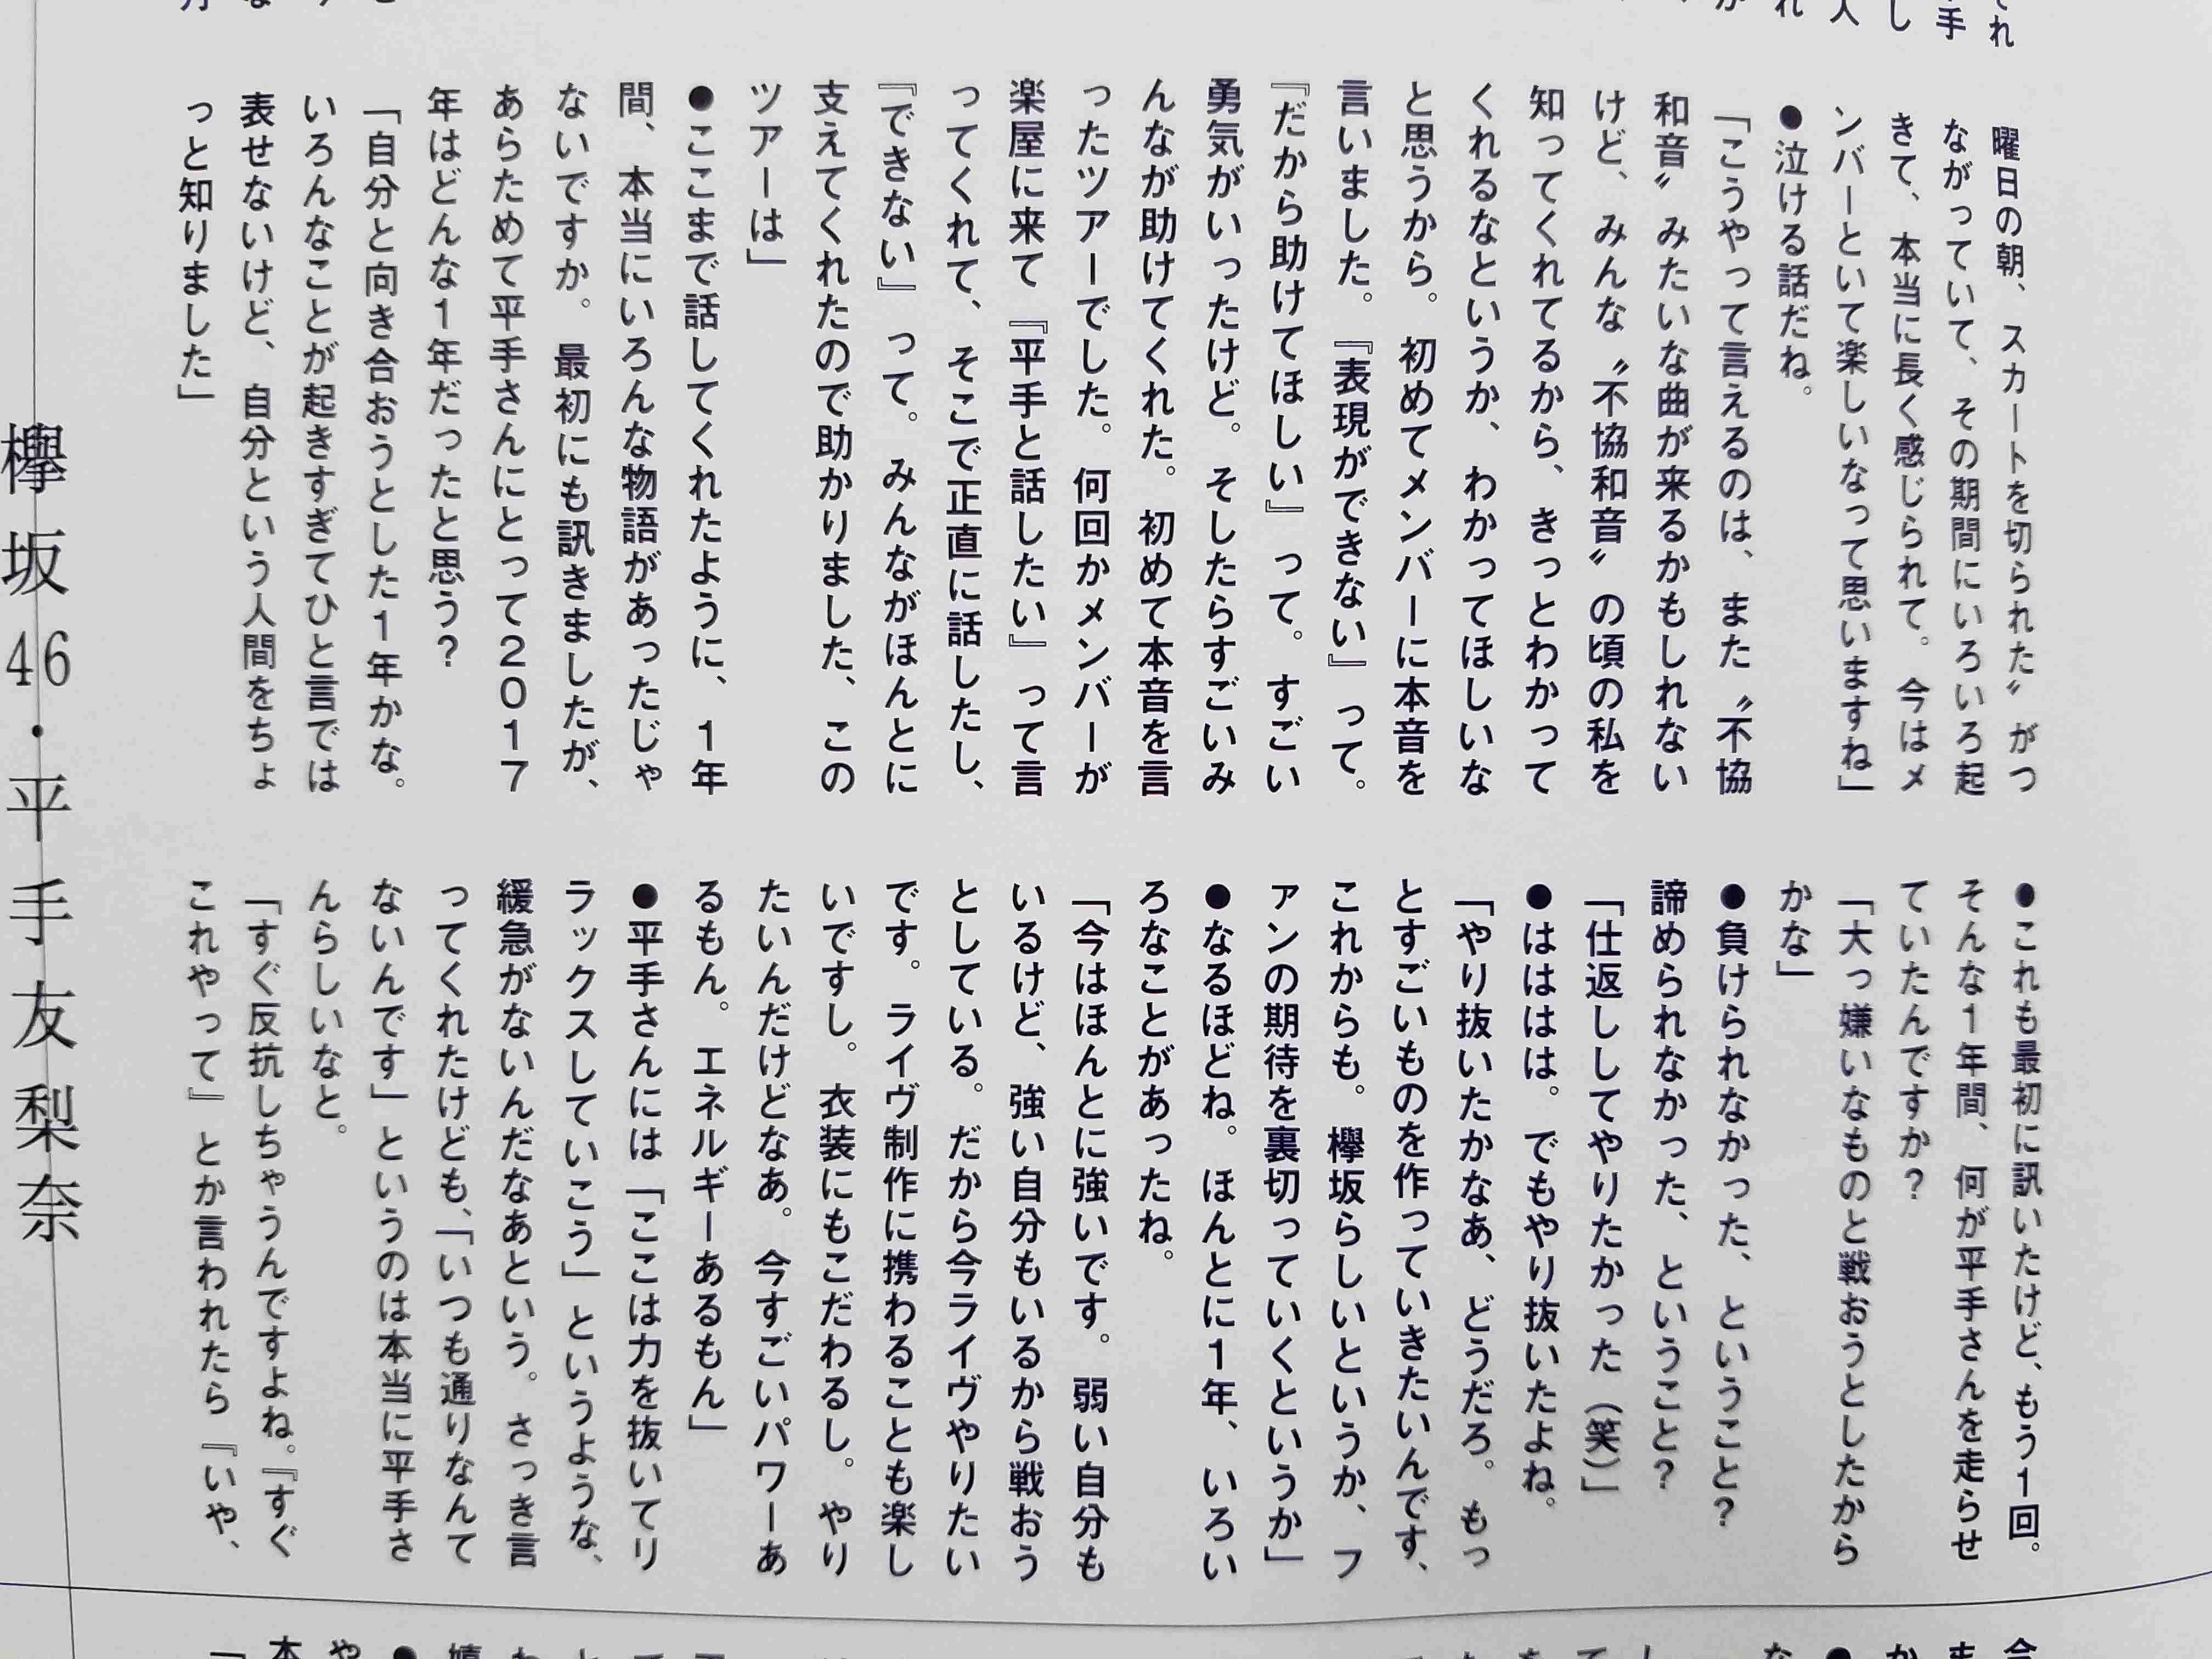 曜日の朝、スカートを切られた〟がつ
ながっていて、その期間にいろいろ起
きて、本当に長く感じられて。今はメ
ンバーといて楽しいなって思いますね」
●泣ける話だね。
「こうやって言えるのは、また〝不協
和音〟みたいな曲が来るかもしれない
けど、みんな〝不協和音〟の頃の私を
知ってくれてるから、きっとわかって
くれるなというか、わかってほしいな
と思うから。初めてメンバーに本音を
言いました。『表現ができない』って。
『だから助けてほしい』って。すごい
勇気がいったけど。そしたらすごいみ
んなが助けてくれた。初めて本音を言
ったツアーでした。何回かメンバーが
楽屋に来て『平手と話したい』って言
ってくれて、そこで正直に話したし、
『できない』って。みんながほんとに
支えてくれたので助かりました、この
ツアーは」
●ここまで話してくれたように、1年
間、本当にいろんな物語があったじゃ
ないですか。最初にも訊きましたが、
あらためて平手さんにとって2017
年はどんな1年だったと思う？
「自分と向き合おうとした1年かな。
いろんなことが起きすぎてひと言では
表せないけど、自分という人間をちょ
っと知りました」
●これも最初に訊いたけど、もう1回。
そんな1年間、何が平手さんを走らせ
ていたんですか？
「大っ嫌いなものと戦おうとしたから
かな」
●負けられなかった、ということ？
諦められなかった、ということ？
「仕返ししてやりたかった（笑）」
●はははは。でもやり抜いたよね。
「やり抜いたかなあ、どうだろ。もっ
とすごいものを作っていきたいんです、
これからも。欅坂らしいというか、フ
ァンの期待を裏切っていくというか」
●なるほどね。ほんとに1年、いろい
ろなことがあったね。
「今はほんとに強いです。弱い自分も
いるけど、強い自分もいるから戦おう
としている。だから今ライヴやりたい
です。ライヴ制作に携わることも楽し
いですし。衣装にもこだわるし。やり
たいんだけどなあ。今すごいパワーあ
るもん。エネルギーあるもん」
●平手さんには「ここは力を抜いてリ
ラックスしていこう」というような、
緩急がないんだなあという。さっき言
ってくれたけども、「いつも通りなんて
ないんです」というのは本当に平手さ
んらしいなと。
「すぐ反抗しちゃうんですよね。『すぐ
これやって』とか言われたら『いや、
欅坂46・平手友梨奈